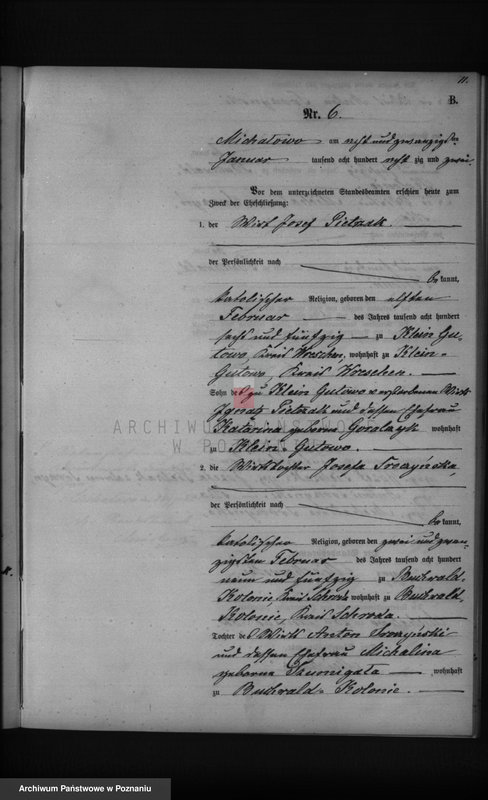 11.
B.
Nr. 6.
Michałowo am acht und zwanzigsten
Januar tausend acht hundert acht zig und zwei.
Vor dem unterzeichneten Standesbeamten erschien heute zum
Zweck der Eheschließung:
1. der Wirt Josef Pietrzak.
der Persönlichkeit nach
be kannt,
katolischer Religion, geboren den elften
Februar des Jahres tausend acht hundert
sechs und fünfzig zu Klein Gu-
towo, Kreis Wreschen, wohnhaft zu Klein-
Gutowo, Kreis Wreschen.
Sohn des zu Klein Gutowo verstorbenen Wirts
Ignatz Pietrzak und dessen Ehefrau
Katarina geborne Goralczyk wohnhaft
zu Klein-Gutowo.
ARCHIWUM PAŃSTWOWE
W POZNANIU
2. die Wirthstochter Josefa Sroczyńska,
der Persönlichkeit nach
be kannt,
katolischer Religion, geboren den zwei und zwan-
zigsten Februar des Jahres tausend acht hundert
neun und fünfzig zu Buchwald-
Kolonie, Kreis Schroda wohnhaft zu Buchwald-
Kolonie, Kreis Schroda.
Tochter des Wirts Anton Sroczyński
und dessen Ehefrau Michalina
geborne Szumigała wohnhaft
zu Buchwald-Kolonie.
Archiwum Państwowe w Poznaniu